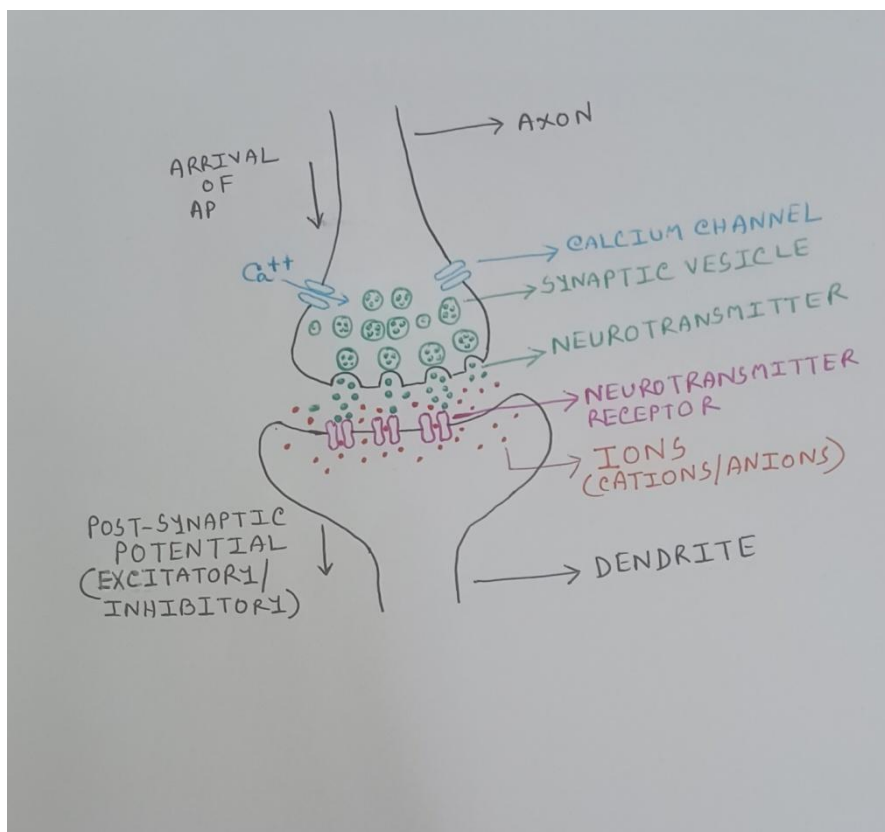 AXON
ARRIVAL
OF
AP
CALCIUM CHANNEL
Ca++
SYNAPTIC VESICLE
NEUROTRANSMITTER
NEUROTRANSMITTER
RECEPTOR
IONS
(CATIONS/ANIONS)
POST-SYNAPTIC
POTENTIAL
(EXCITATORY/
INHIBITORY)
DENDRITE